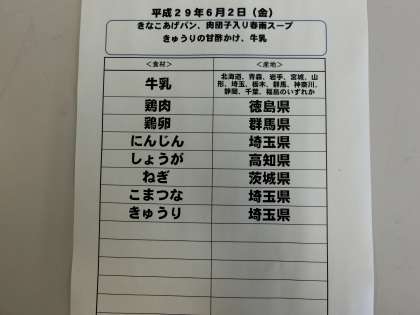 平成29年6月2日（金）
きなこあげパン、肉団子入り春雨スープ
きゅうりの甘酢かけ、牛乳
＜食材＞ ＜産地＞
牛乳 北海道、青森、岩手、宮城、山形、埼玉、栃木、群馬、神奈川、静岡、千葉、福島のいずれか
鶏肉 徳島県
鶏卵 群馬県
にんじん 埼玉県
しょうが 高知県
ねぎ 茨城県
こまつな 埼玉県
きゅうり 埼玉県